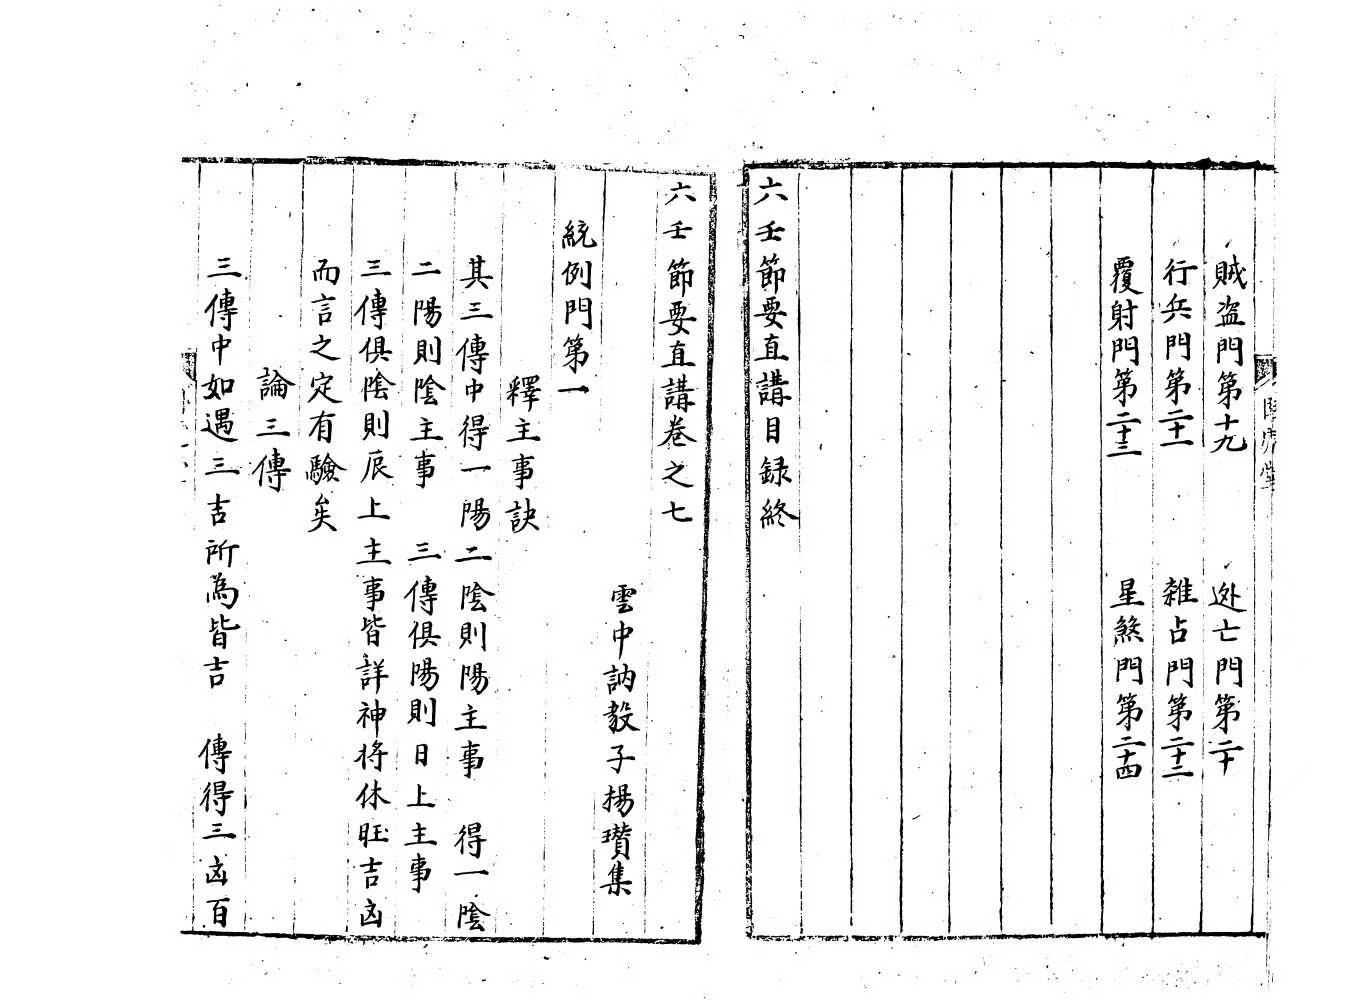 賊盜門第十九　迯亡門第二十
行兵門第二十一　雜占門第二十二
覆射門第二十三　星煞門第二十四
六壬節要直講目録終
六壬節要直講卷之七
雲中訥毅子揚瓚集
統例門第一
釋主事訣
其三傳中得一陽二陰則陽主事　得一陰
二陽則陰主事　三傳俱陽則日上主事
三傳俱陰則辰上主事皆詳神将休旺吉凶
而言之定有驗矣
論三傳
三傳中如遇三吉所為皆吉　傳得三凶百